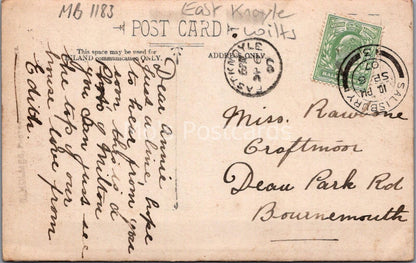 MB 1183
East Knoyle
Wilts
POST CARD
This space may be used for
INLAND communication ONLY.
ADDRESS ONLY.
EAST KNOYLE
SALISBURY
Dear Annie
Just a line hope
to hear from you
soon this is a
Photo of Milton
you can just see
the top of our
house love from
Edith
Miss. Rawbone
Craftmoor
Dean Park Rd
Bournemouth